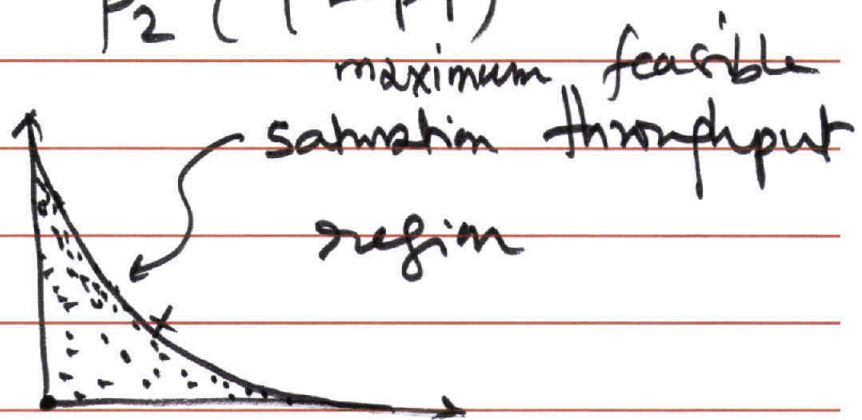 P2 (1 - P1)
maximum feasible
saturation throughput
region